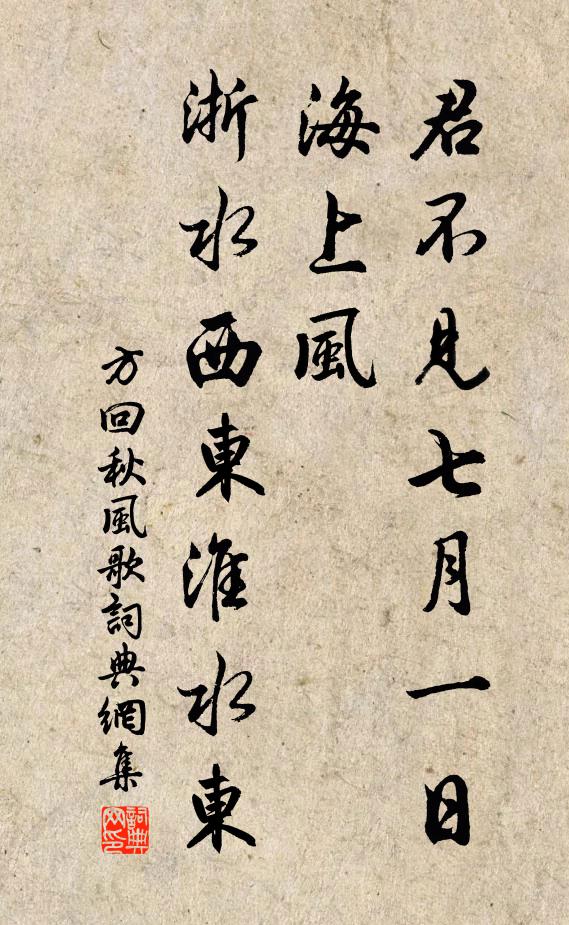 君不見七月一日
海上風
浙水西東淮水東
方回秋風歌詞典網集
詞典网印